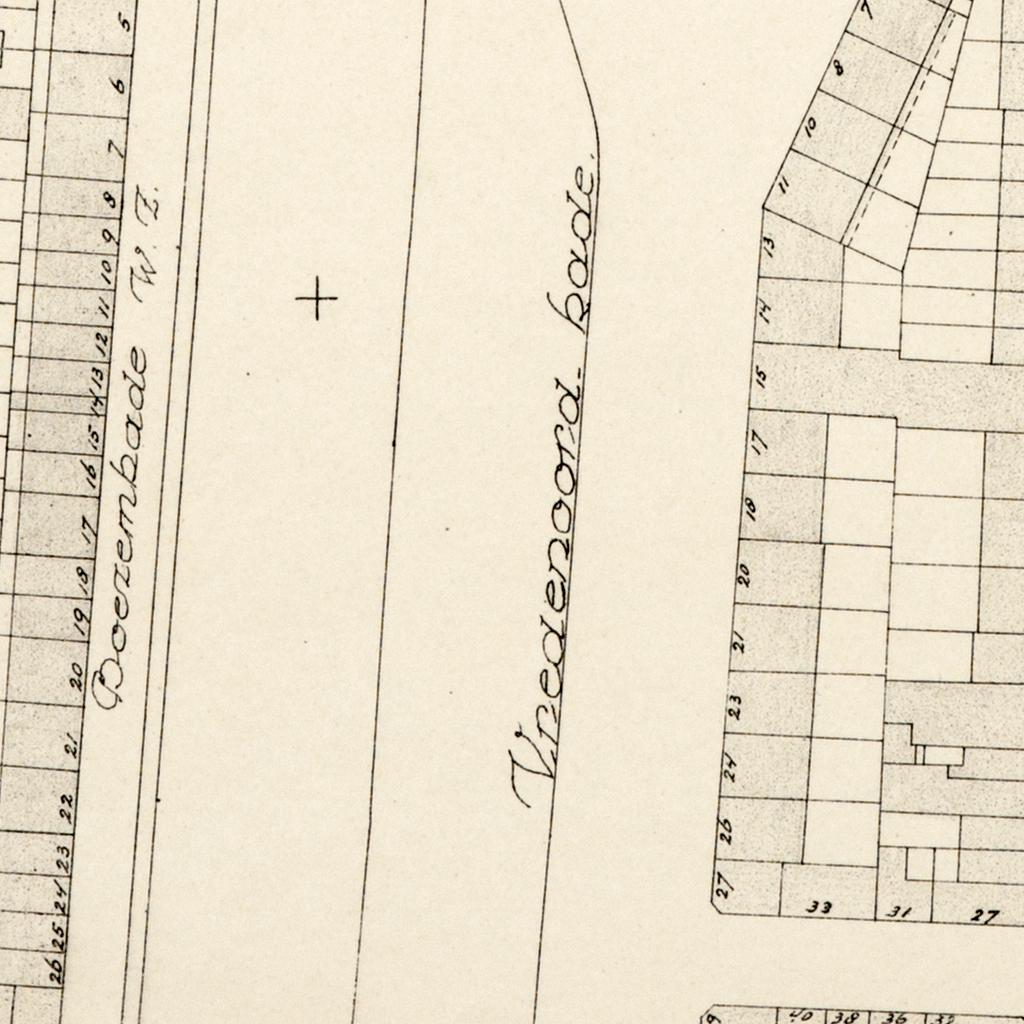 5
6
7
8
9
10
11
12
13
14
15
16
17
18
19
20
21
22
23
24
25
26
Boezemkade W. Z.
Vredenoord- kade.
7
8
10
11
13
14
15
17
18
20
21
23
24
26
27
33
31
27
9
40
38
36